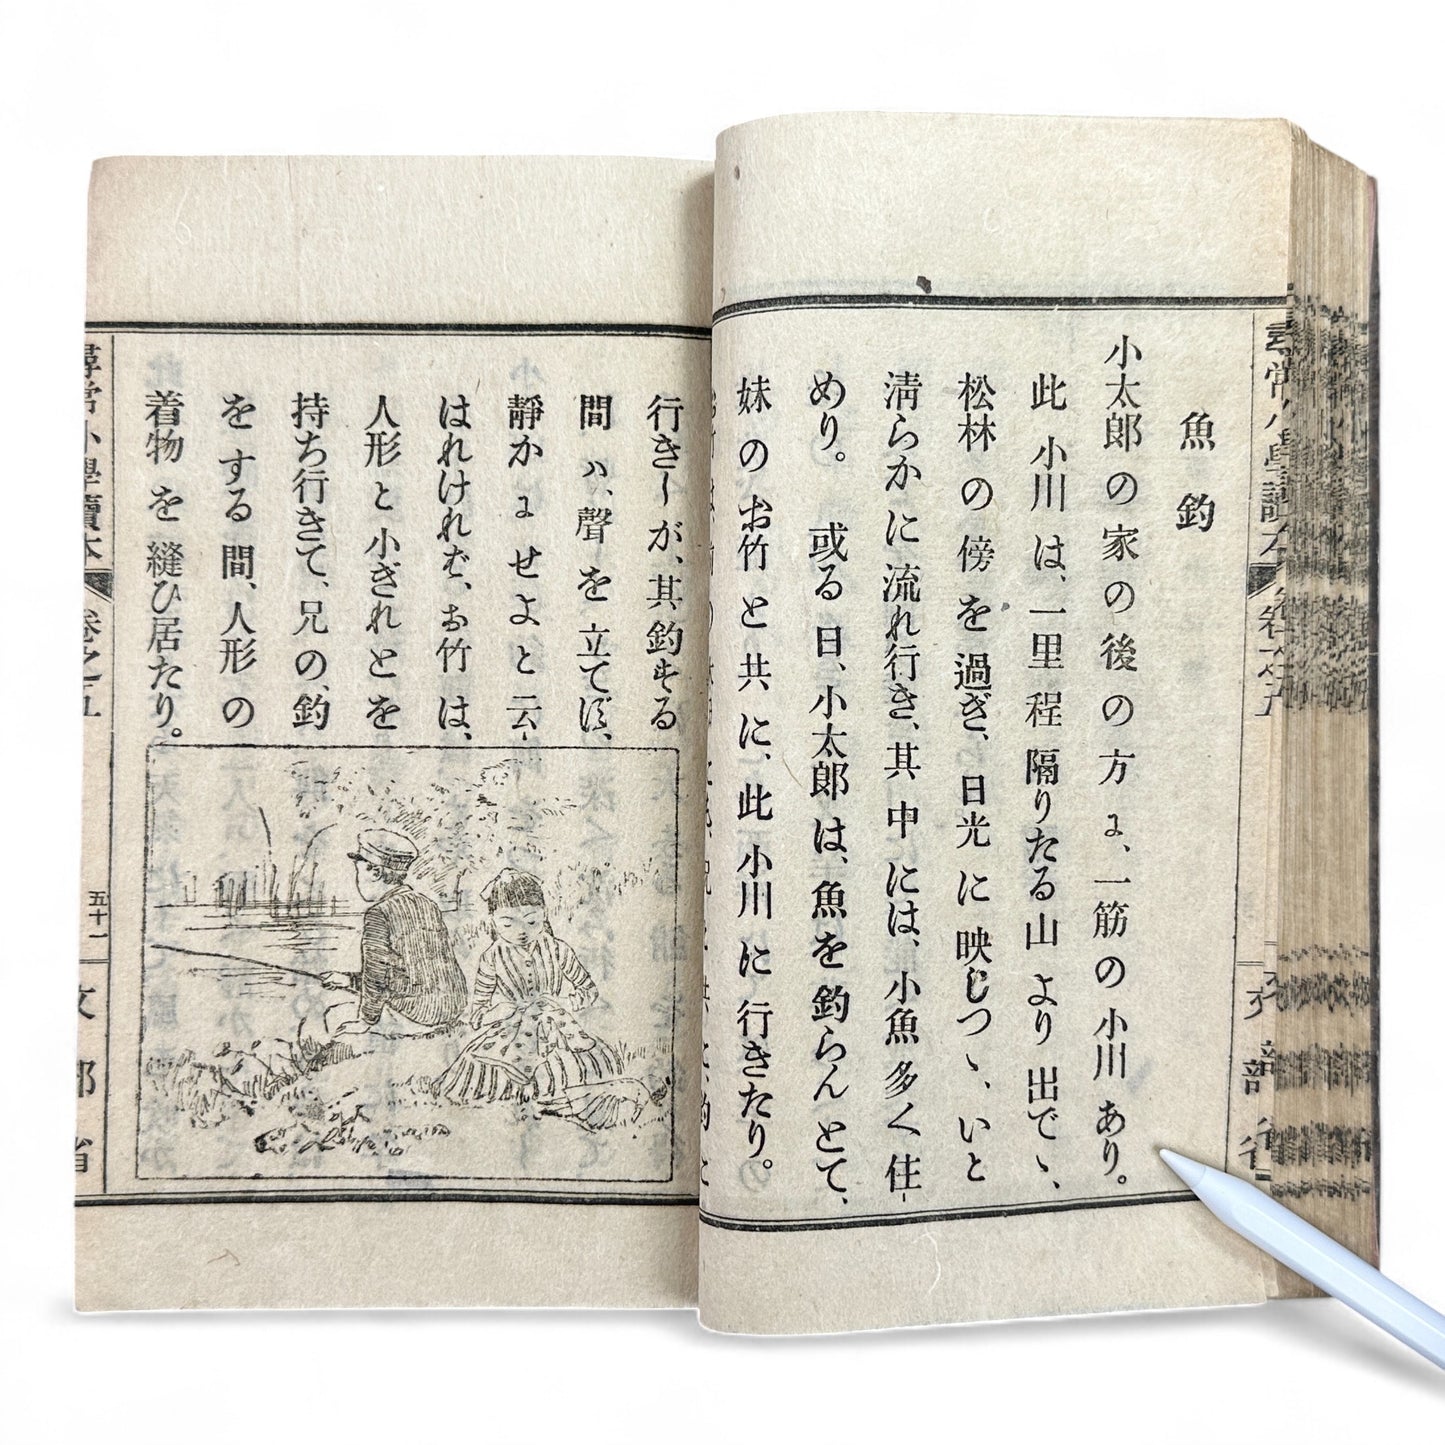 尋常小學讀本 卷之五 文部省
魚釣
小太郎の家の後の方に、一筋の小川あり。
此小川は、一里程隔りたる山より出でゝ、
松林の傍を過ぎ、日光に映じつゝ、いと
淸らかに流れ行き、其中には、小魚多く住
めり。或る日、小太郎は、魚を釣らんとて、
妹のお竹と共に、此小川に行きたり。
行きしが、其釣する
間ハ、聲を立てず、
靜かにせよと云
はれければ、お竹は、
人形と小ぎれとを
持ち行きて、兄の、釣
をする間、人形の
着物を縫ひ居たり。
尋常小學讀本 卷之五 五十一 文部省